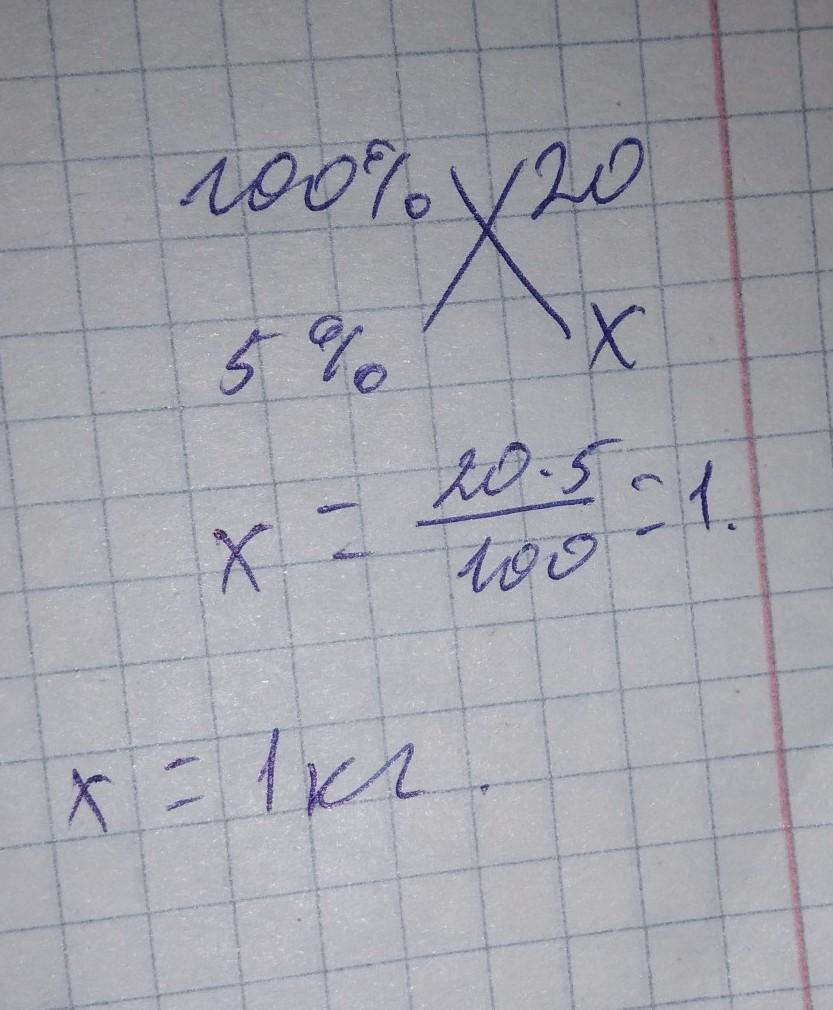 100% 20
5% x
x = 20·5/100 = 1.
x = 1 кг.